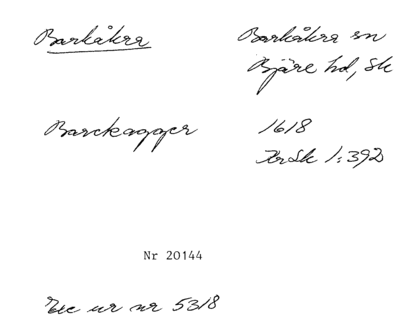 Barkåkra
Barkåkra sn
Bjäre hd, Sk
Barckagger
1618
KrSk 1:392
Nr 20144
Exc ur nr 5318